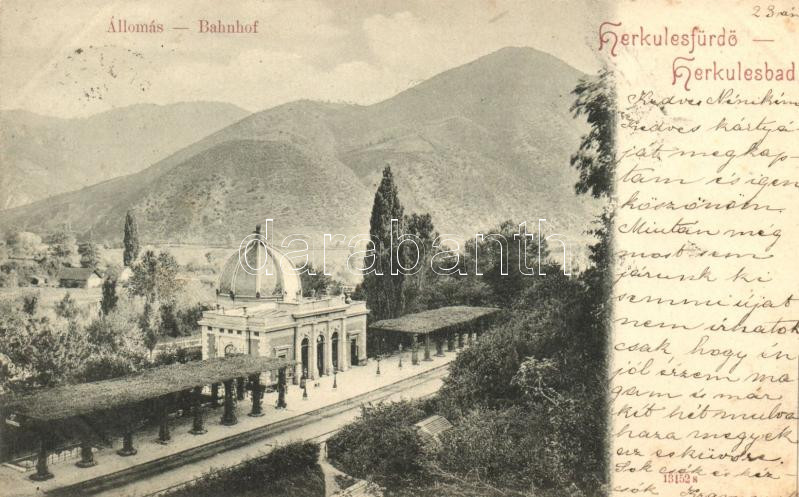 Állomás — Bahnhof
Herkulesfürdő —
Herkulesbad
Kedves Nénikém
Kedves kártyá-
ját megkap-
tam és igen
köszönöm.
Miután még
most sem
járunk ki
semmi újat
nem írhatok
csak, hogy én
jól érzem ma
gam és már
két hét mulva
haza megyek
az esküvőre.
Sok csók és kéz-
csók
darabanth.com
13152 s